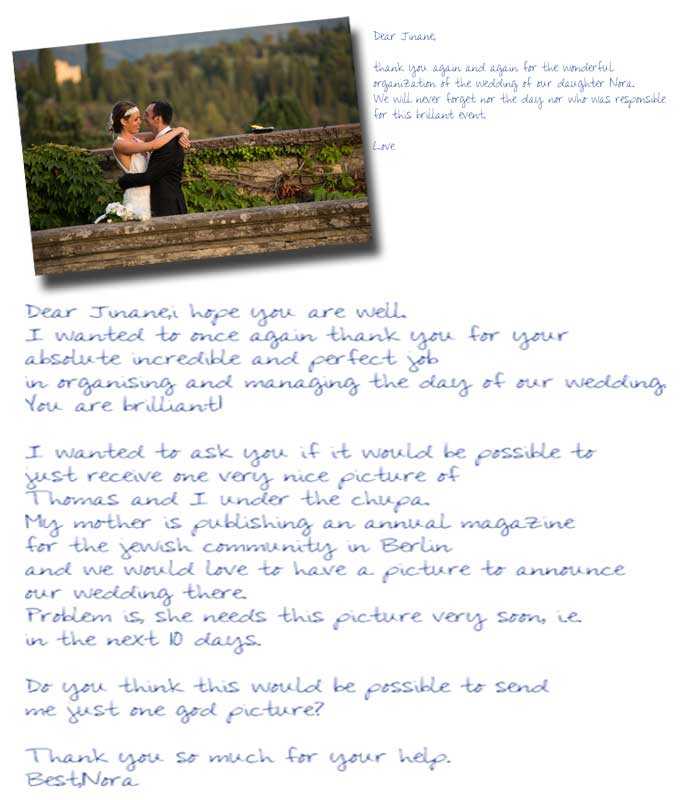 Dear Jinane,
thank you again and again for the wonderful
organization of the wedding of our daughter Nora.
We will never forget nor the day nor who was responsible
for this brillant event.
Love
Dear Jinane,i hope you are well.
I wanted to once again thank you for your
absolute incredible and perfect job
in organising and managing the day of our wedding.
You are brilliant!
I wanted to ask you if it would be possible to
just receive one very nice picture of
Thomas and I under the chupa.
My mother is publishing an annual magazine
for the jewish community in Berlin
and we would love to have a picture to announce
our wedding there.
Problem is, she needs this picture very soon, i.e.
in the next 10 days.
Do you think this would be possible to send
me just one god picture?
Thank you so much for your help.
Best,Nora